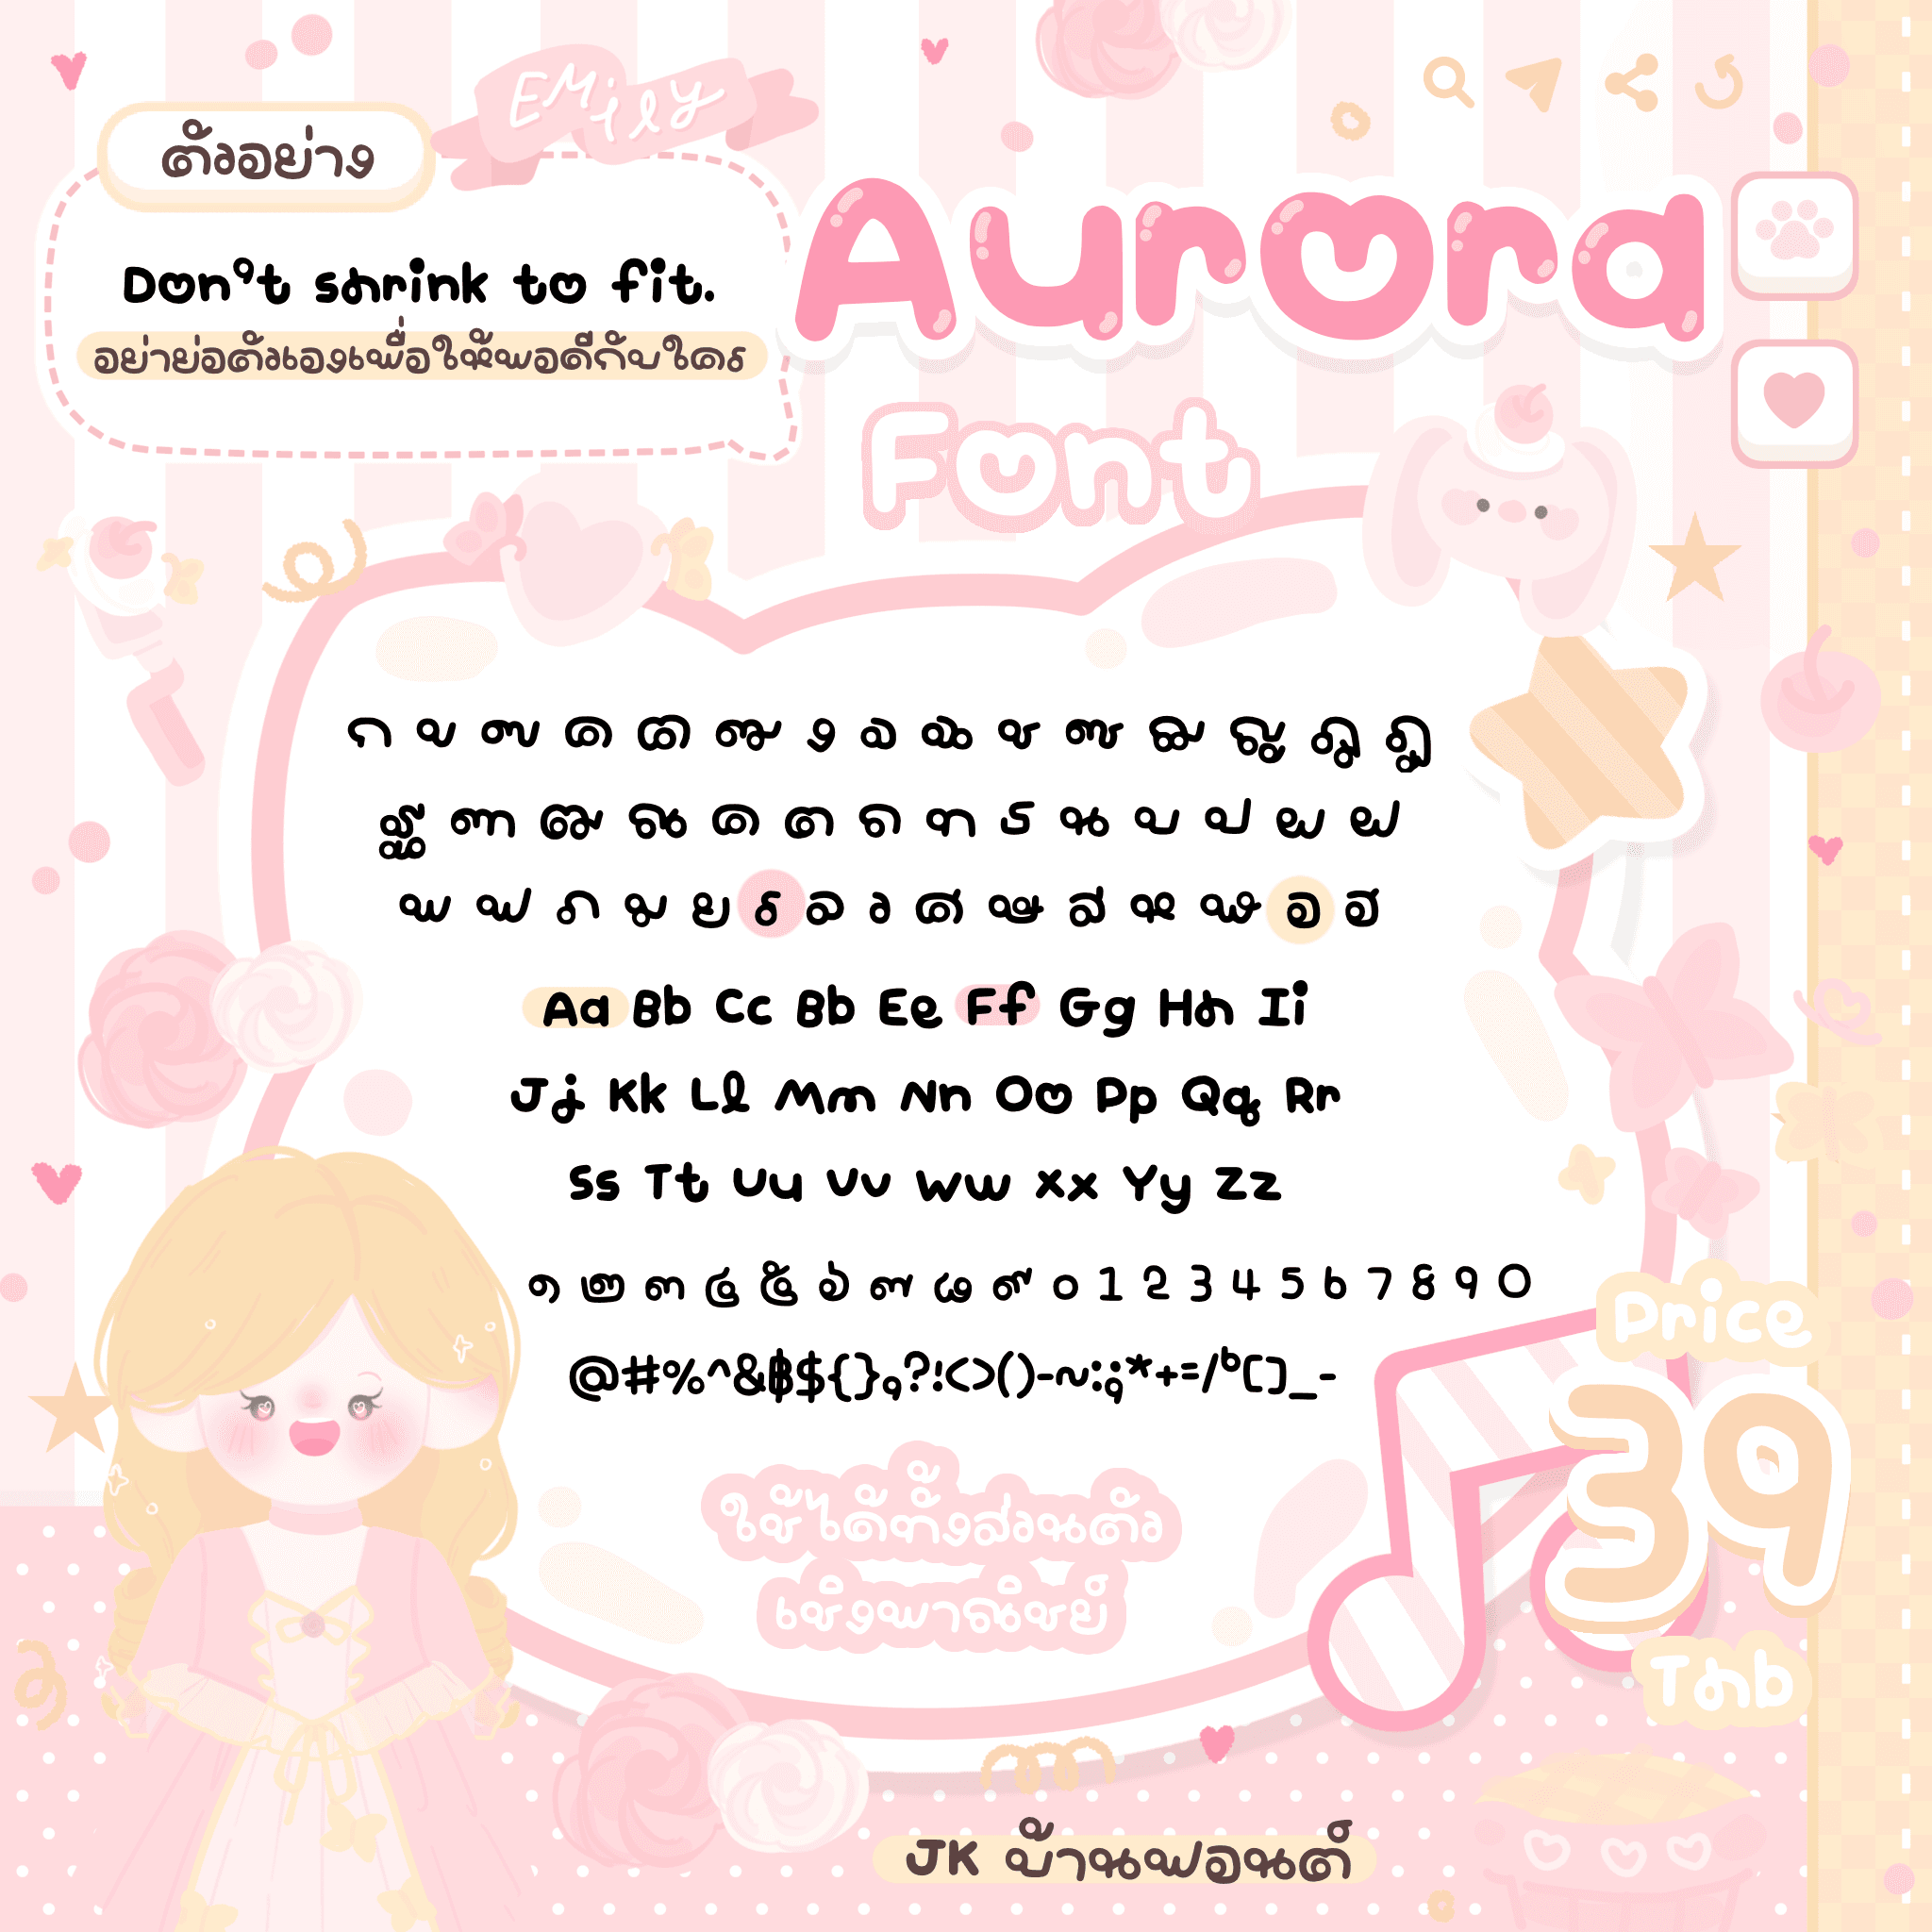 EMily
ตัวอย่าง
Don't shrink to fit.
อย่าย่อตัวเองเพื่อให้พอดีกับใคร
Aurora
Font
ก ข ฃ ค ฅ ฆ ง จ ฉ ช ซ ฌ ญ ฎ ฏ
ฐ ฑ ฒ ณ ด ต ถ ท ธ น บ ป ผ ฝ
พ ฟ ภ ม ย ร ล ว ศ ษ ส ห ฬ อ ฮ
Aa Bb Cc Bb Ee Ff Gg Hh Ii
Jj Kk Ll Mm Nn Oo Pp Qq Rr
Ss Tt Uu Vv Ww Xx Yy Zz
๑ ๒ ๓ ๔ ๕ ๖ ๗ ๘ ๙ ๐ 1 2 3 4 5 6 7 8 9 0
@#%^&฿${},?!<>()-~:;*+=/'[]_-
ใช้ได้ทั้งส่วนตัว
เชิงพาณิชย์
Price
39
Thb
JK บ้านฟอนต์